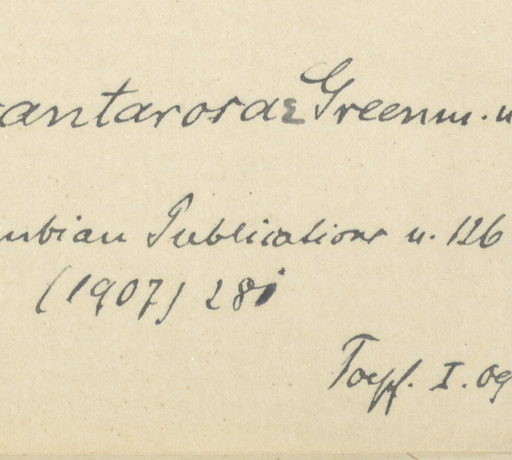 antarosae Greenm. n
mbian Publications n. 126
(1907) 28
I. 09